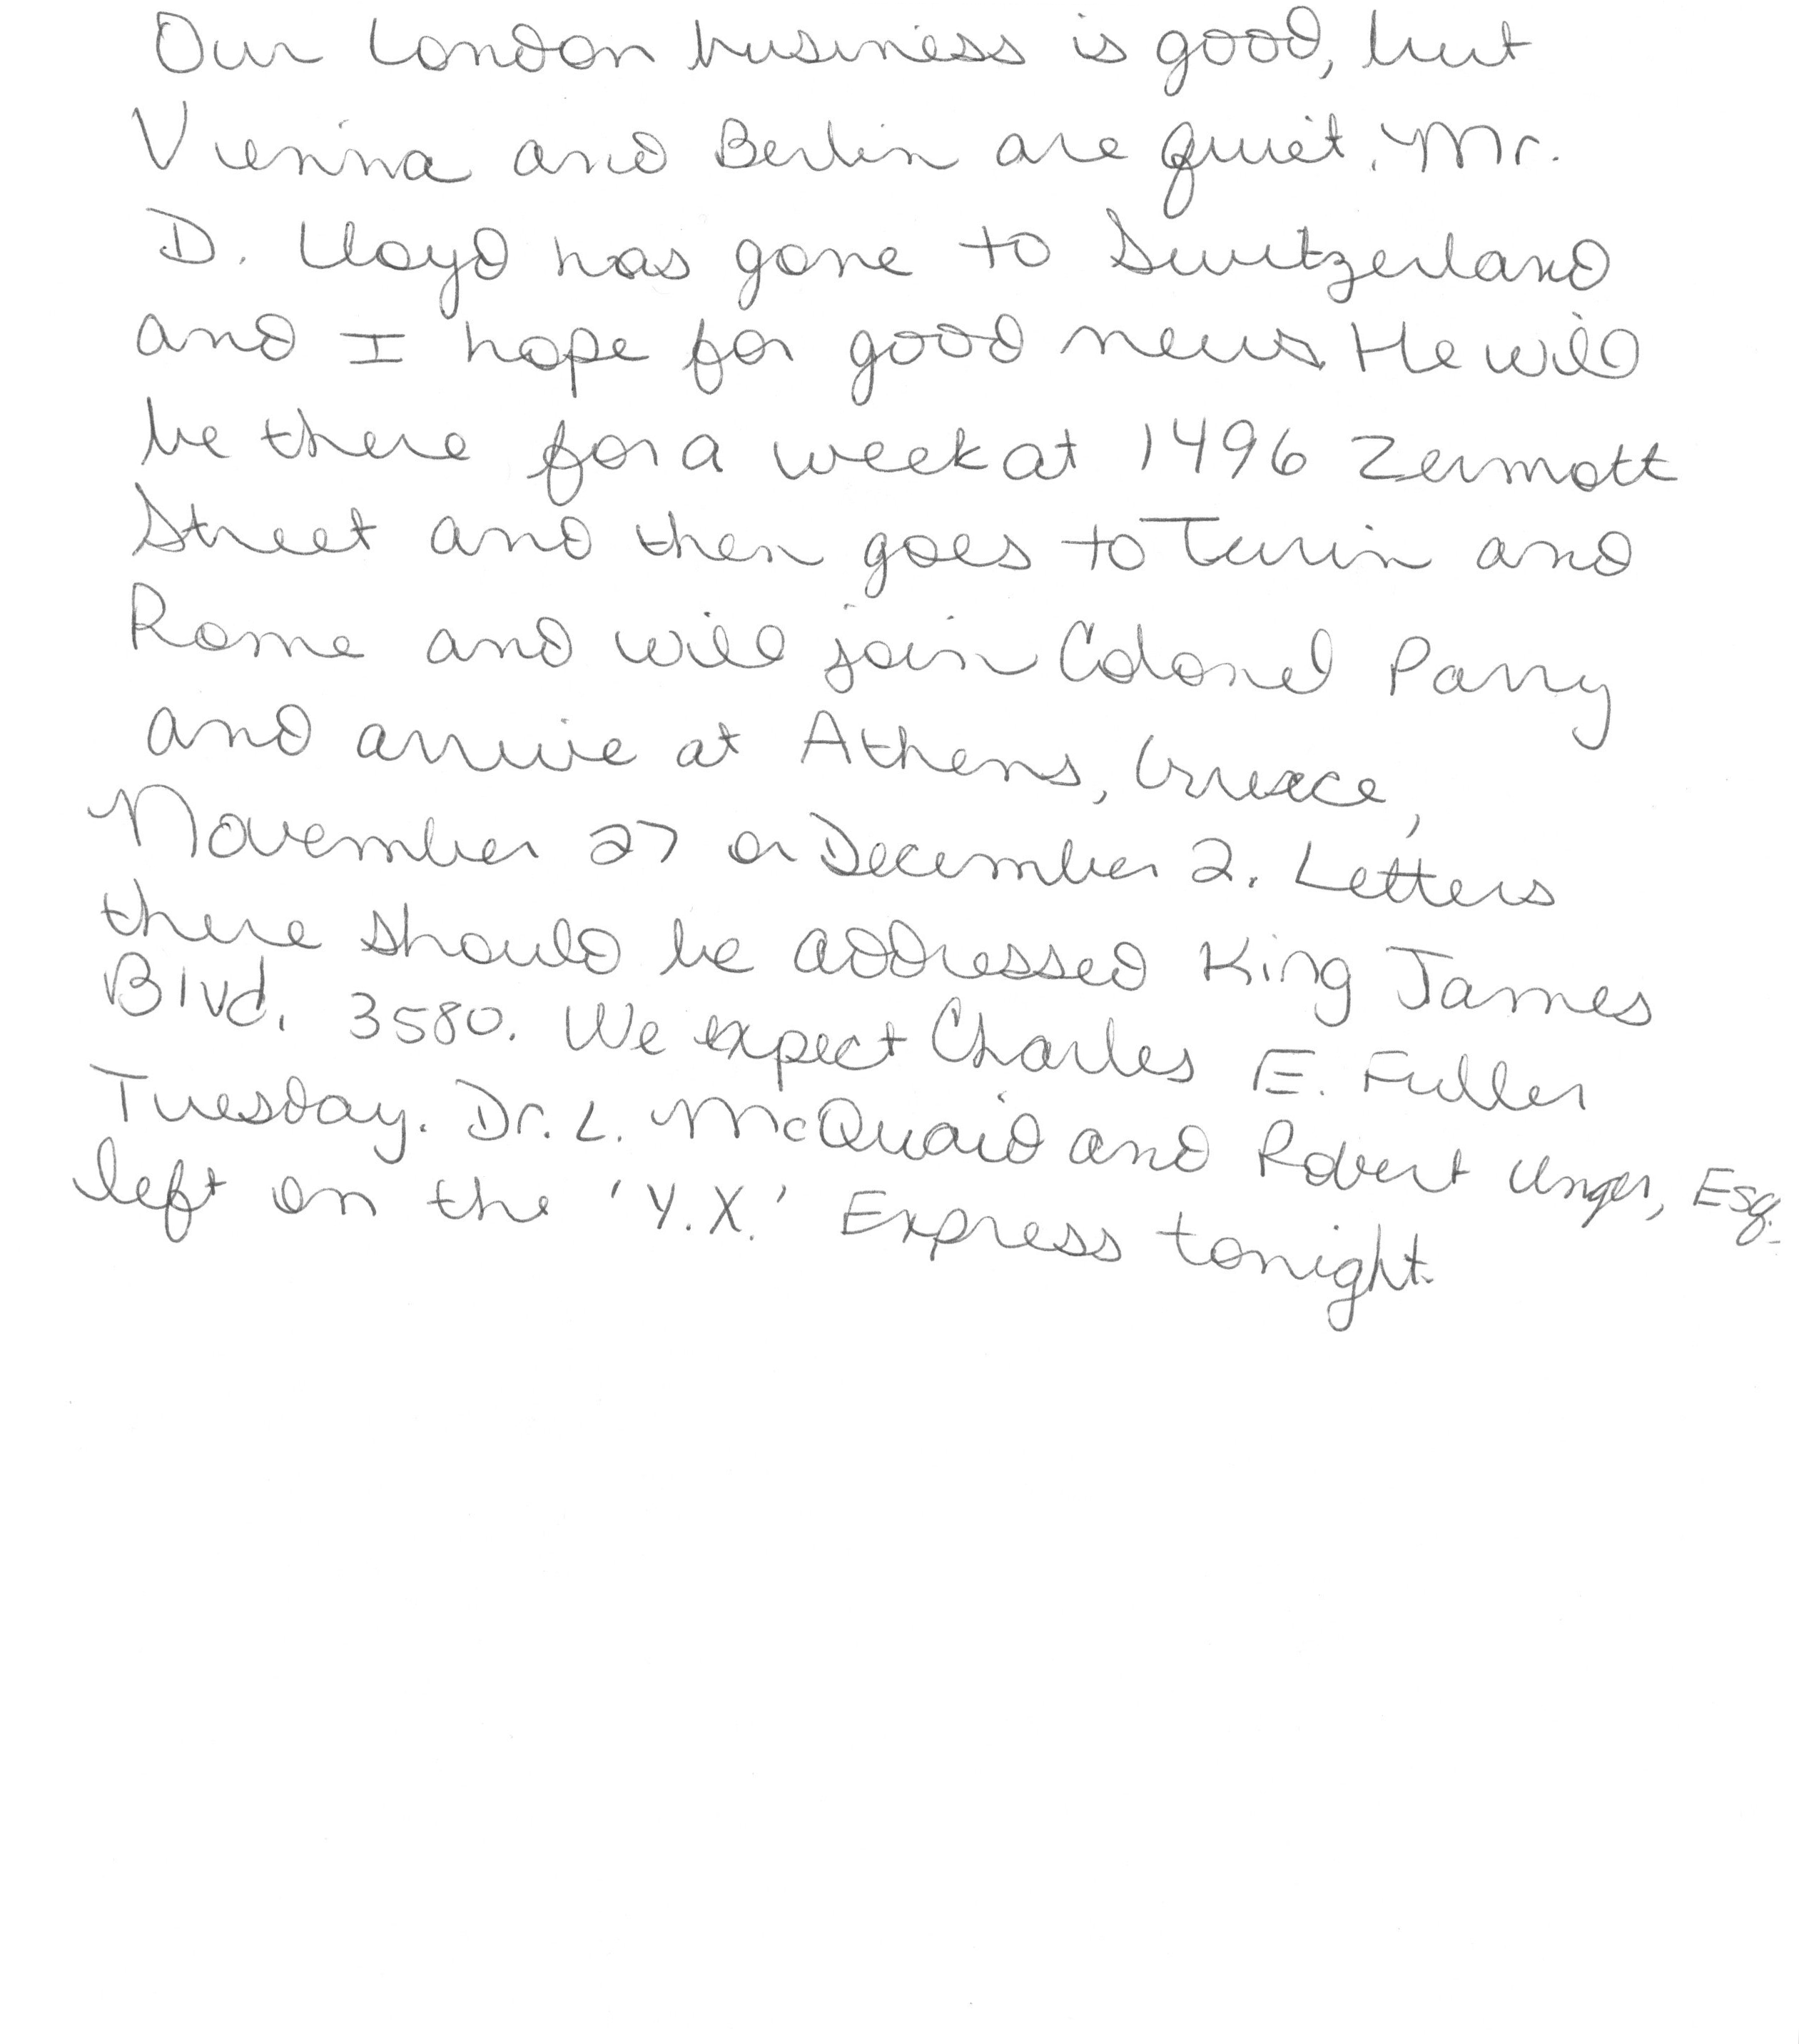 Our London business is good, but
Vienna and Berlin are quiet. Mr.
D. Lloyd has gone to Switzerland
and I hope for good news. He will
be there for a week at 1496 Zermott
Street and then goes to Turin and
Rome and will join Colonel Parry
and arrive at Athens, Greece,
November 27 or December 2. Letters
there should be addressed King James
Blvd. 3580. We expect Charles E. Fuller
Tuesday. Dr. L. McQuaid and Robert Unger, Esq.
left on the 'Y.X.' Express tonight.